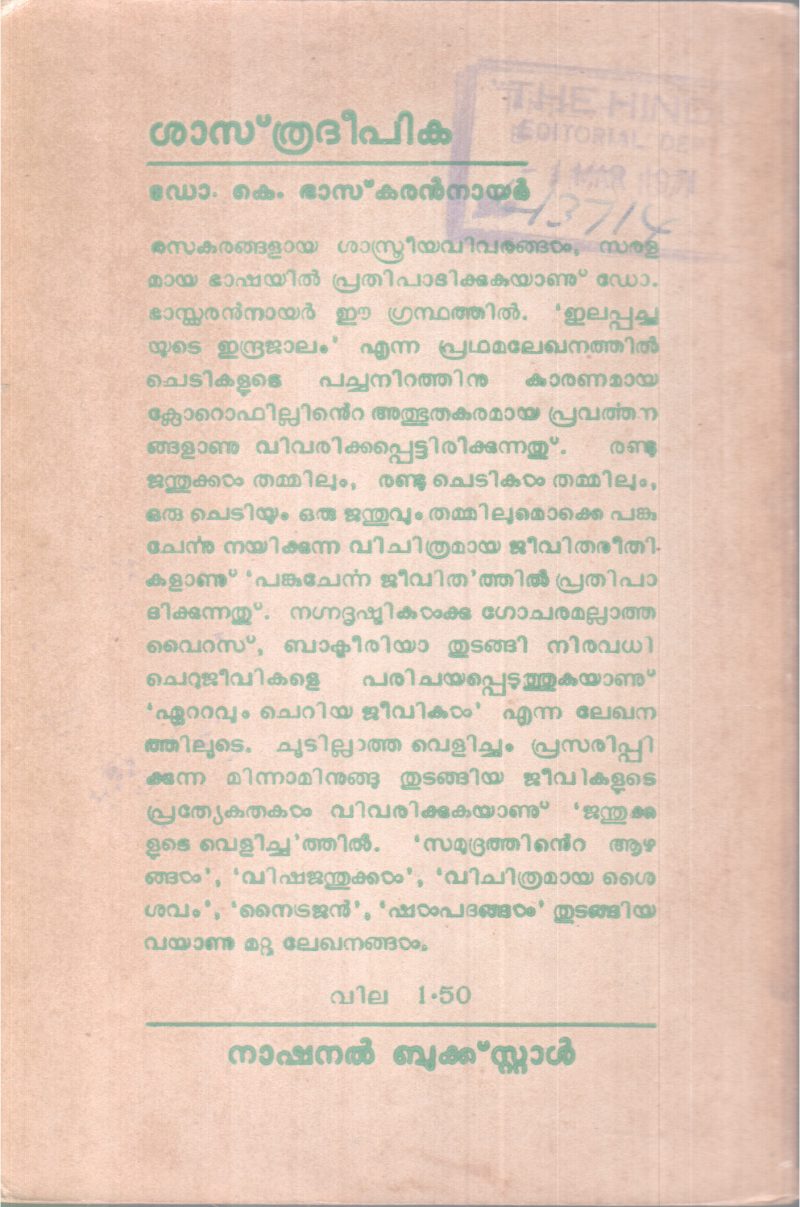 THE HIND
EDITORIAL DEP
-1 MAR 1971
13714
ശാസ്ത്രദീപിക
ഡോ. കെ. ഭാസ്കരൻനായർ
രസകരങ്ങളായ ശാസ്ത്രീയവിവരങ്ങൾ, സരള
മായ ഭാഷയിൽ പ്രതിപാദിക്കുകയാണു് ഡോ.
ഭാസ്കരൻനായർ ഈ ഗ്രന്ഥത്തിൽ. ‘ഇലപ്പച്ച
യുടെ ഇന്ദ്രജാലം’ എന്ന പ്രഥമലേഖനത്തിൽ
ചെടികളുടെ പച്ചനിറത്തിനു കാരണമായ
ക്ലോറോഫില്ലിൻെറ അത്ഭുതകരമായ പ്രവർത്തന
ങ്ങളാണു വിവരിക്കപ്പെട്ടിരിക്കുന്നതു്. രണ്ടു
ജന്തുക്കൾ തമ്മിലും, രണ്ടു ചെടികൾ തമ്മിലും,
ഒരു ചെടിയും ഒരു ജന്തുവും തമ്മിലുമൊക്കെ പങ്കു
ചേർന്നു നയിക്കുന്ന വിചിത്രമായ ജീവിതരീതി
കളാണു് ‘പങ്കുചേർന്ന ജീവിത’ത്തിൽ പ്രതിപാ
ദിക്കുന്നതു്. നഗ്നദൃഷ്ടികൾക്കു ഗോചരമല്ലാത്ത
വൈറസ്, ബാക്ടീരിയാ തുടങ്ങി നിരവധി
ചെറുജീവികളെ പരിചയപ്പെടുത്തുകയാണു്
‘ഏററവും ചെറിയ ജീവികൾ’ എന്ന ലേഖന
ത്തിലൂടെ. ചൂടില്ലാത്ത വെളിച്ചം പ്രസരിപ്പി
ക്കുന്ന മിന്നാമിനുങ്ങു തുടങ്ങിയ ജീവികളുടെ
പ്രത്യേകതകൾ വിവരിക്കുകയാണു് ‘ജന്തുക്ക
ളുടെ വെളിച്ച’ത്തിൽ. ‘സമുദ്രത്തിൻെറ ആഴ
ങ്ങൾ’, ‘വിഷജന്തുക്കൾ’, ‘വിചിത്രമായ ശൈ
ശവം’, ‘നൈട്രജൻ’, ‘ഷൾപദങ്ങൾ’ തുടങ്ങിയ
വയാണു മറ്റു ലേഖനങ്ങൾ.
വില 1·50
നാഷനൽ ബുക്ക്സ്റ്റാൾ